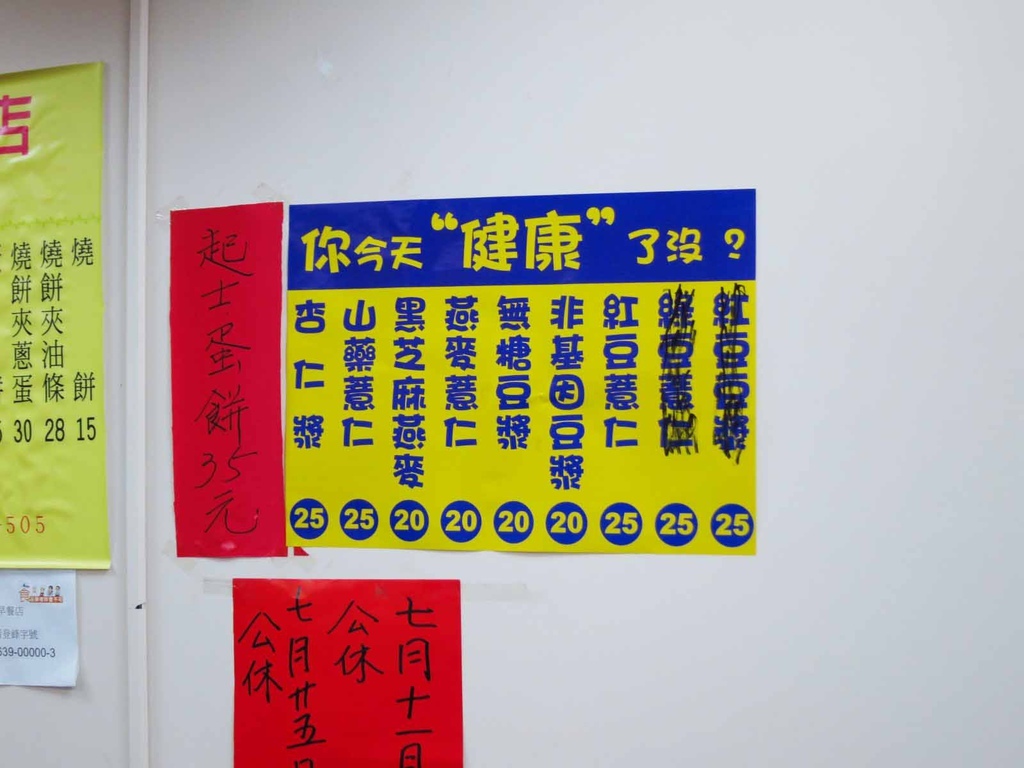 店
燒
燒餅夾油條 28
燒餅夾蔥蛋 30
餅 15
505
早餐店
登錄字號
639-00000-3
起士蛋餅35元
你今天“健康”了沒?
紅豆薏仁 25
非基因豆漿 20
無糖豆漿 20
燕麥薏仁 20
黑芝麻燕麥 20
山藥薏仁 25
杏仁漿 25
25
25
七月十一日
公休
七月廿五日
公休